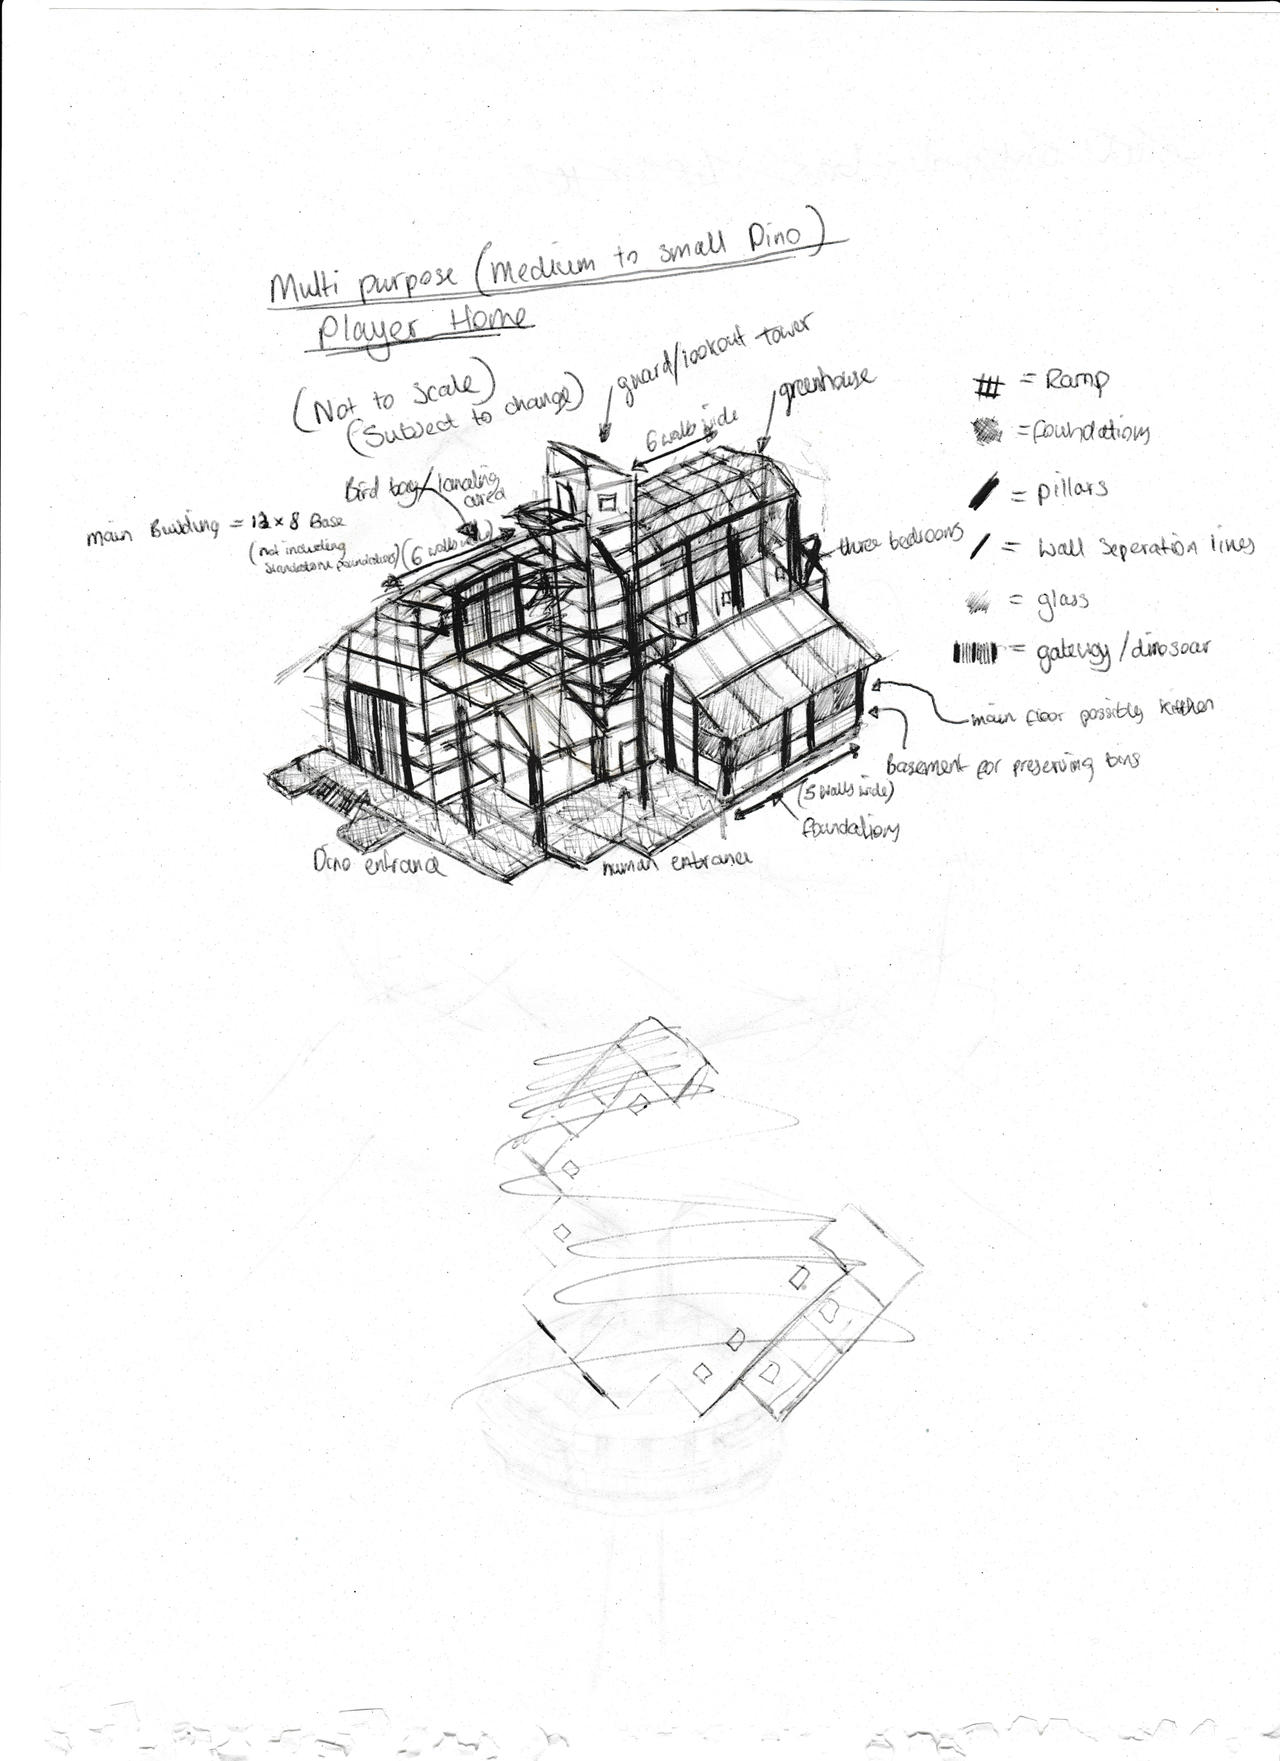 Multi purpose (medium to small Dino)
Player Home
(Not to scale)
(Subject to change)
guard/lookout tower
greenhouse
6 walls wide
Bird bay/landing
area
main Building = 12 x 8 Base
(not including
foundations)
(6 walls wide)
three bedrooms
= Ramp
= foundations
= pillars
= wall seperation lines
= glass
= gateway/dinosoar
main floor possibly kitchen
Basement for preserving bins
(5 walls wide)
foundations
Dino entrance
human entrance